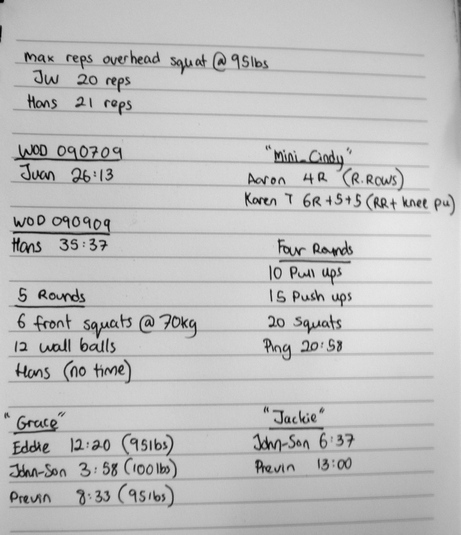 max reps overhead squat @ 95lbs
JW 20 reps
Hans 21 reps
WOD 090709
Juan 26:13
"Mini-Cindy"
Aaron 4R (R.ROWS)
Karen T 6R +5+5 (RR+ knee pu)
WOD 090909
Hans 35:37
Four Rounds
10 Pull ups
15 Push ups
20 Squats
Ping 20:58
5 Rounds
6 front squats @ 70kg
12 wall balls
Hans (no time)
"Grace"
Eddie 12:20 (95lbs)
John-Son 3:58 (100lbs)
Previn 8:33 (95lbs)
"Jackie"
John-Son 6:37
Previn 13:00